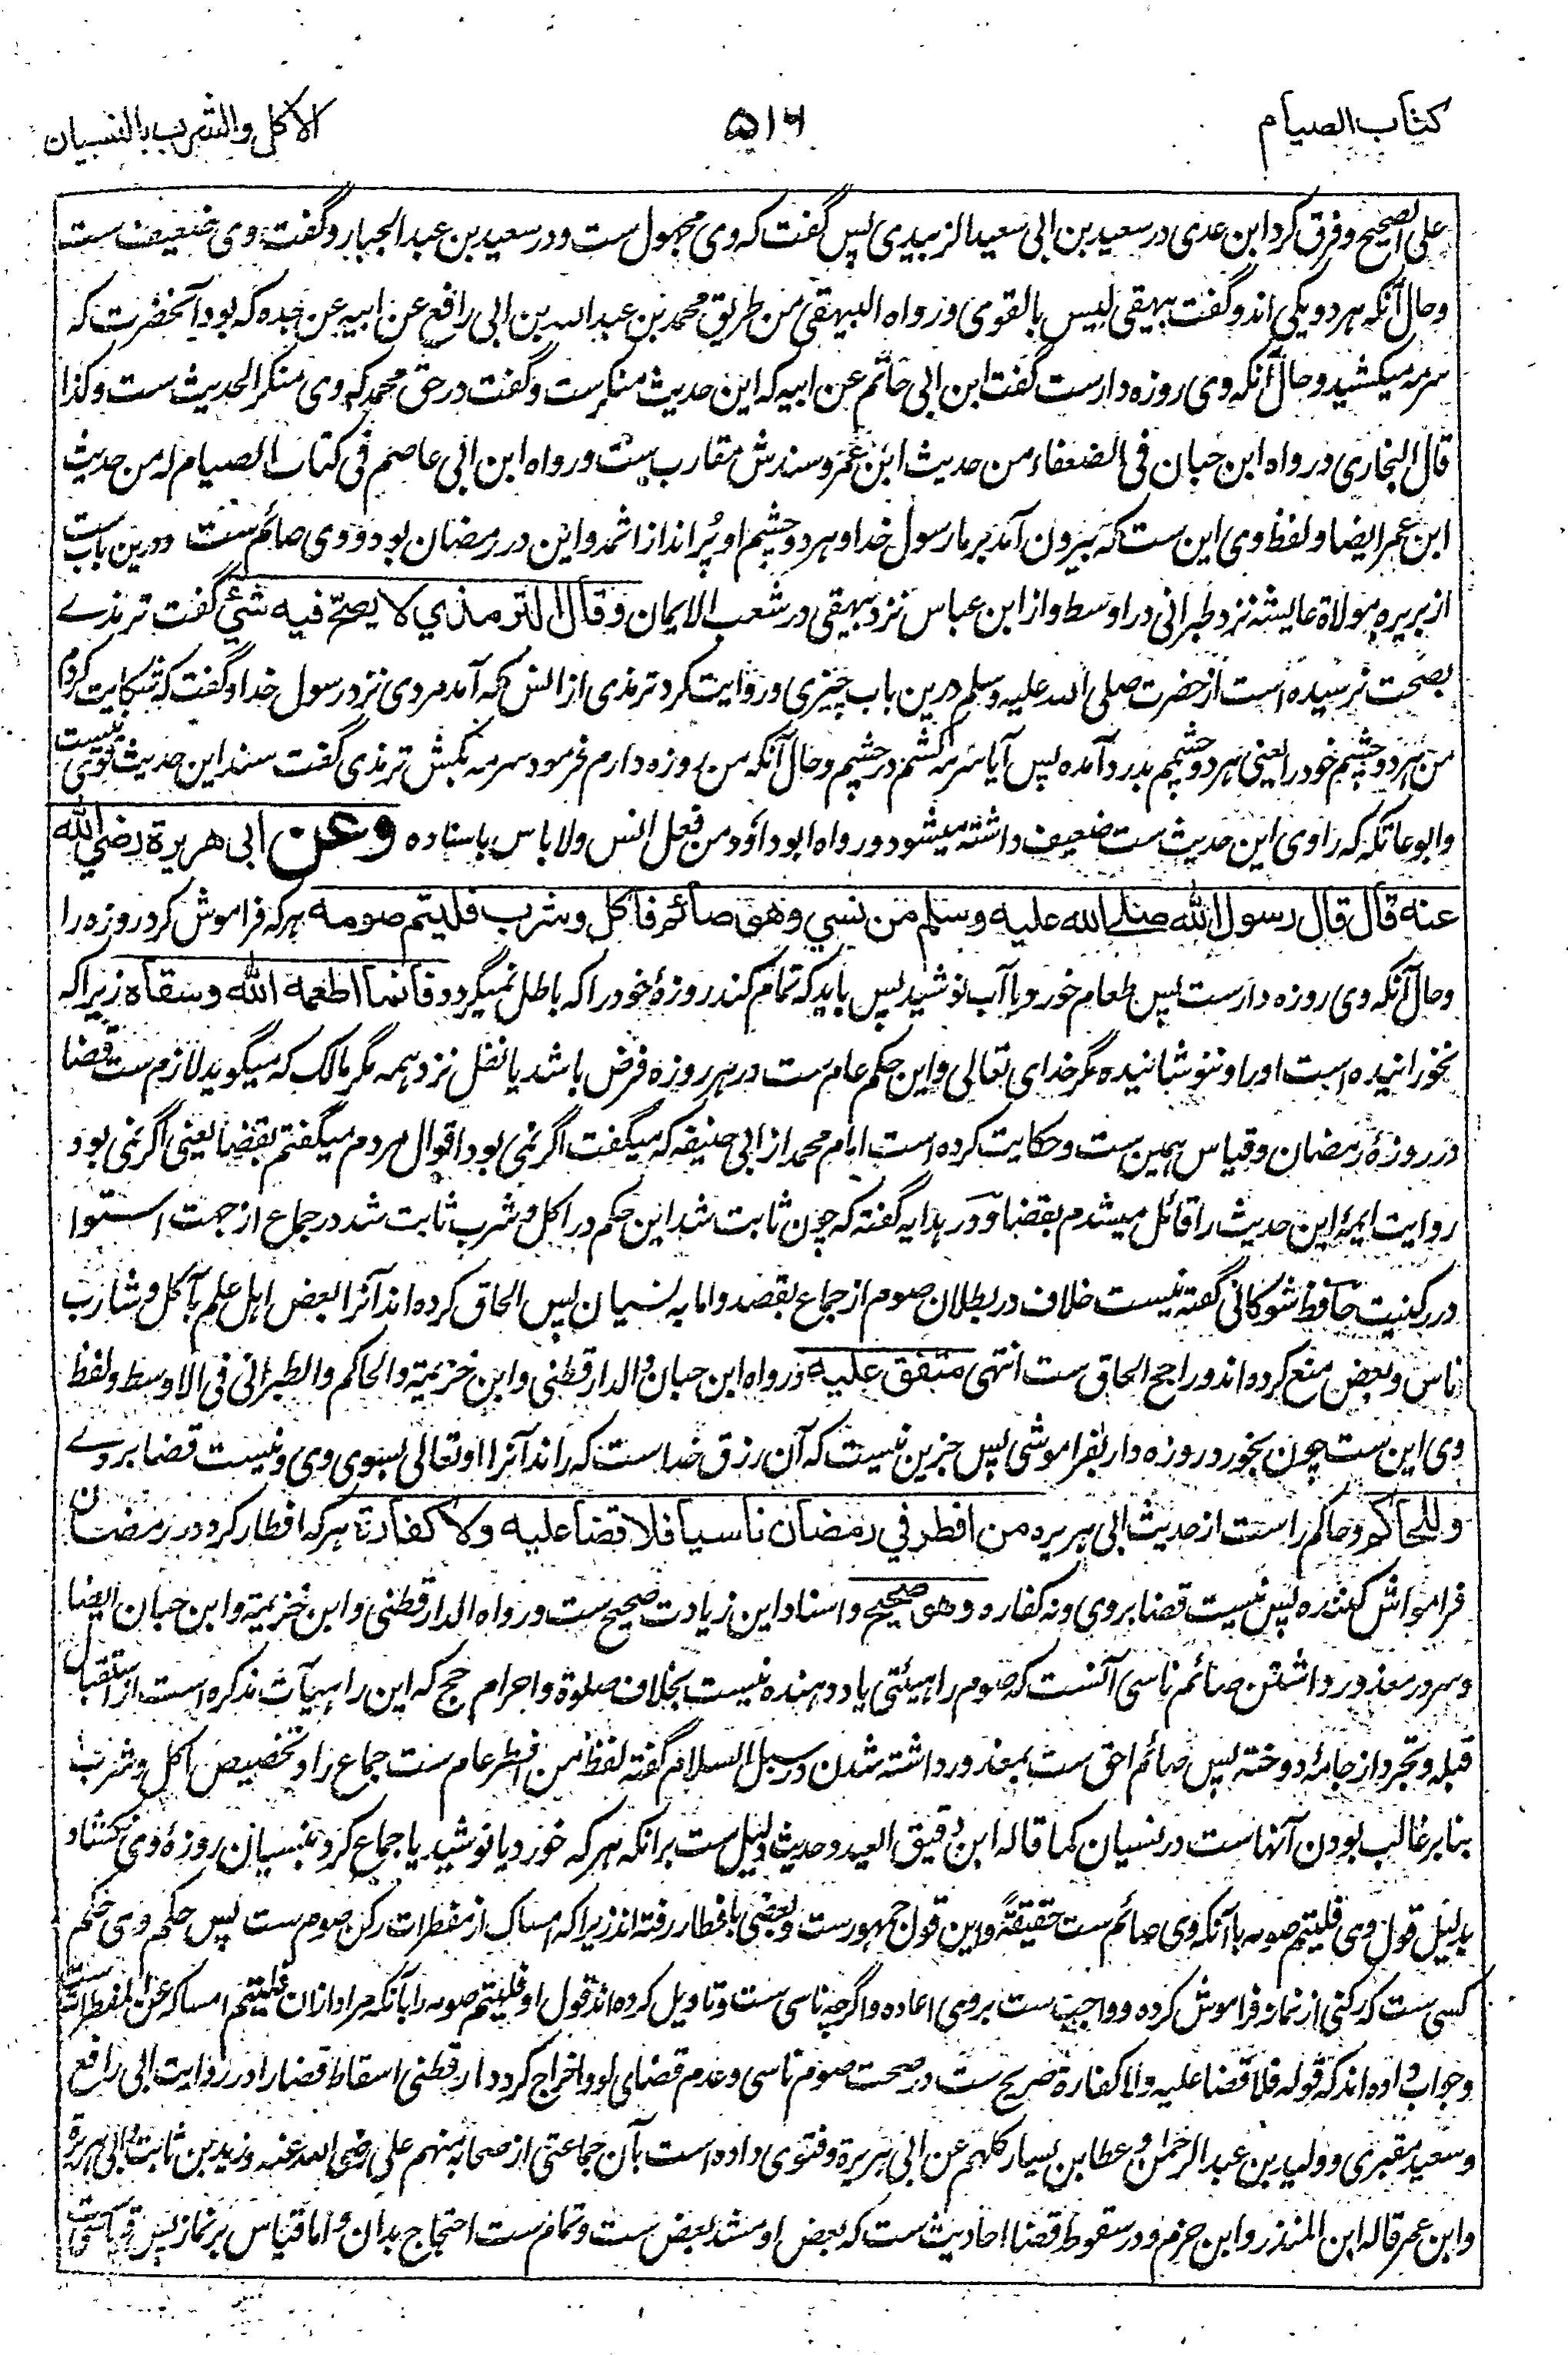 كتاب الصيام
۵۱۶
الاكل والشرب بالنسيان
على الصحيح وفرق كرد ابن عدى در سعيد بن ابى سعيد الزبيدى پس گفت كه وى مجهول ست ودر سعيد بن عبد الجبار وگفت وى ضعيف ست
وحال آنكه هر دو يكى اند وگفت بيهقى ليس بالقوى ورواه البيهقى من طريق محمد بن عبد الله بن ابى رافع عن ابيه عن جده كه بود آنحضرت كه
سرمه ميكشيد وحال آنكه وى روزه دار ست گفت ابن ابى حاتم عن ابيه كه اين حديث منكر ست وگفت در حق محمد كه وى منكر الحديث ست وكذا
قال البخارى ورواه ابن حبان فى الضعفاء من حديث ابن عمر وسندش مقارب ست ورواه ابن ابى عاصم فى كتاب الصيام له من حديث
ابن عمر ايضا ولفظ وى اين ست كه بيرون آمد بر ما رسول خدا وهر دو چشم او پُر انداز اثمد واين در رمضان بود ووى صائم ست ودرين باب ست
از بريره مولاة عايشه نزد طبرانى در اوسط واز ابن عباس نزد بيهقى در شعب الايمان وقال الترمذي لا يصحّ فيه شيءٌ گفت ترمذے
بصحت نرسيده است از حضرت صلى الله عليه وسلم درين باب چيزى وروايت كرد ترمذى از انس كه آمد مردى نزد رسول خدا وگفت كه شكايت كردم
من هر دو چشم خود را يعنى هر دو چشمم بدرد آمده پس آيا سرمه كشم در چشم وحال آنكه من روزه دارم فرمود سرمه بكش ترمذى گفت سند اين حديث قوى نيست
وابو عاتكه كه راوى اين حديث ست ضعيف داشته ميشود ورواه ابو داؤد من فعل انس ولا باس باسناده وعن ابى هريرة رضي الله
عنه قال قال رسول الله صلى الله عليه وسلم من نسي وهو صائم فاكل وشرب فليتم صومه هر كه فراموش كرد روزه را
وحال آنكه وى روزه دار ست پس طعام خورد يا آب نوشيد پس بايد كه تمام كند روزۀ خود را كه باطل نميگردد فانما اطعمه الله وسقاه زيرا كه
نخورانيده است او را وننوشانيده مگر خداى تعالى واين حكم عام ست در هر روزه فرض باشد يا نفل نزد همه مگر مالك كه ميگويد لازم ست قضا
در روزۀ رمضان وقياس همين ست وحكايت كرده است امام محمد از ابى حنيفه كه ميگفت اگر نمى بود اقوال مردم ميگفتم بقضا يعنى اگر نمى بود
روايت ايمۀ اين حديث را قائل ميشدم بقضا ودر هدايه گفته كه چون ثابت شد اين حكم در اكل وشرب ثابت شد در جماع از جهت استوا
در ركنيت حافظ شوكانى گفته نيست خلاف در بطلان صوم از جماع بقصد واما به نسيان پس الحاق كرده اند آنرا بعض اهل علم بآكل وشارب
ناس وبعض منع كرده اند وراجح الحاق ست انتهى متفق عليه ورواه ابن حبان والدارقطنى وابن خزيمة والحاكم والطبرانى فى الاوسط ولفظ
وى اين ست چون بخورد روزه دار بفراموشى پس جزين نيست كه آن رزق خداست كه راند آنرا او تعالى بسوى وى ونيست قضا بروے
وللحاكم وحاكم راست از حديث ابى هريره من افطر في رمضان ناسيا فلا قضا عليه ولا كفارة هر كه افطار كرد در رمضان
فراموش كننده پس نيست قضا بروى ونه كفاره وهو صحيح واسناد اين زيادت صحيح ست ورواه الدارقطنى وابن خزيمة وابن حبان ايضا
وسر در معذور داشتن صائم ناسى آنست كه صوم را هيئتى ياد دهنده نيست بخلاف صلوة واحرام حج كه اين را هيآت مذكره است از استقبال
قبله وتجرد از جامۀ دوخته پس صائم احق ست بمعذور داشته شدن در سبل السلام گفته لفظ من افطر عام ست جماع را وتخصيص اكل وشرب
بنا بر غالب بودن آنهاست در نسيان كما قاله ابن دقيق العيد وحديث دليل ست برانكه هر كه خورد يا نوشيد يا جماع كرد بنسيان روزۀ وى نكشاد
بدليل قول وى فليتم صومه با آنكه وى صائم ست حقيقةً واين قول جمهور ست وبعضى بافطار رفته اند زيرا كه امساك از مفطرات ركن صوم ست پس حكم وى حكم
كسى ست كه ركنى از نماز فراموش كرده وواجب ست بروى اعاده واگرچه ناسى ست وتاويل كرده اند قول او فليتم صومه را بآنكه مراد ازان فليتم امساكه عن المفطرات ست
وجواب داده اند كه قوله فلا قضا عليه ولا كفارة صريح ست در صحت صوم ناسى وعدم قضاى او واخراج كرد دارقطنى اسقاط قضا را در روايت ابى رافع
وسعيد مقبرى ووليد بن عبد الرحمن وعطا بن يسار كلهم عن ابى هريرة وفتوى داده است بآن جماعتى از صحابه منهم على رضى الله عنه وزيد بن ثابت وابى هريرة
وابن عمر قاله ابن المنذر وابن حزم ودر سقوط قضا احاديث ست كه بعض او مشد بعض ست وتمام ست احتجاج بدان واما قياس بر نماز پس